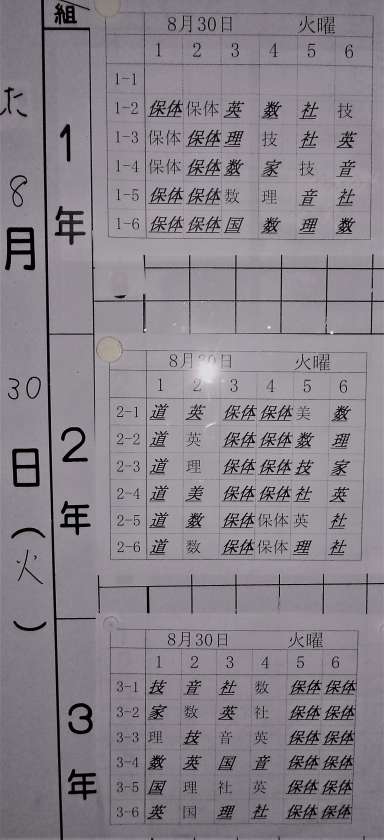 組
た
8
月
30
日
(
火
)
1
年
8月30日 火曜
1 2 3 4 5 6
1-1
1-2 保体 保体 英 数 社 技
1-3 保体 保体 理 技 社 英
1-4 保体 保体 数 家 技 音
1-5 保体 保体 数 理 音 社
1-6 保体 保体 国 数 理 数
2
年
8月30日 火曜
1 2 3 4 5 6
2-1 道 英 保体 保体 美 数
2-2 道 英 保体 保体 数 理
2-3 道 理 保体 保体 技 家
2-4 道 美 保体 保体 社 英
2-5 道 数 保体 保体 英 社
2-6 道 数 保体 保体 理 社
3
年
8月30日 火曜
1 2 3 4 5 6
3-1 技 音 社 数 保体 保体
3-2 家 数 英 社 保体 保体
3-3 理 技 音 英 保体 保体
3-4 数 英 国 音 保体 保体
3-5 国 理 社 英 保体 保体
3-6 英 国 理 社 保体 保体